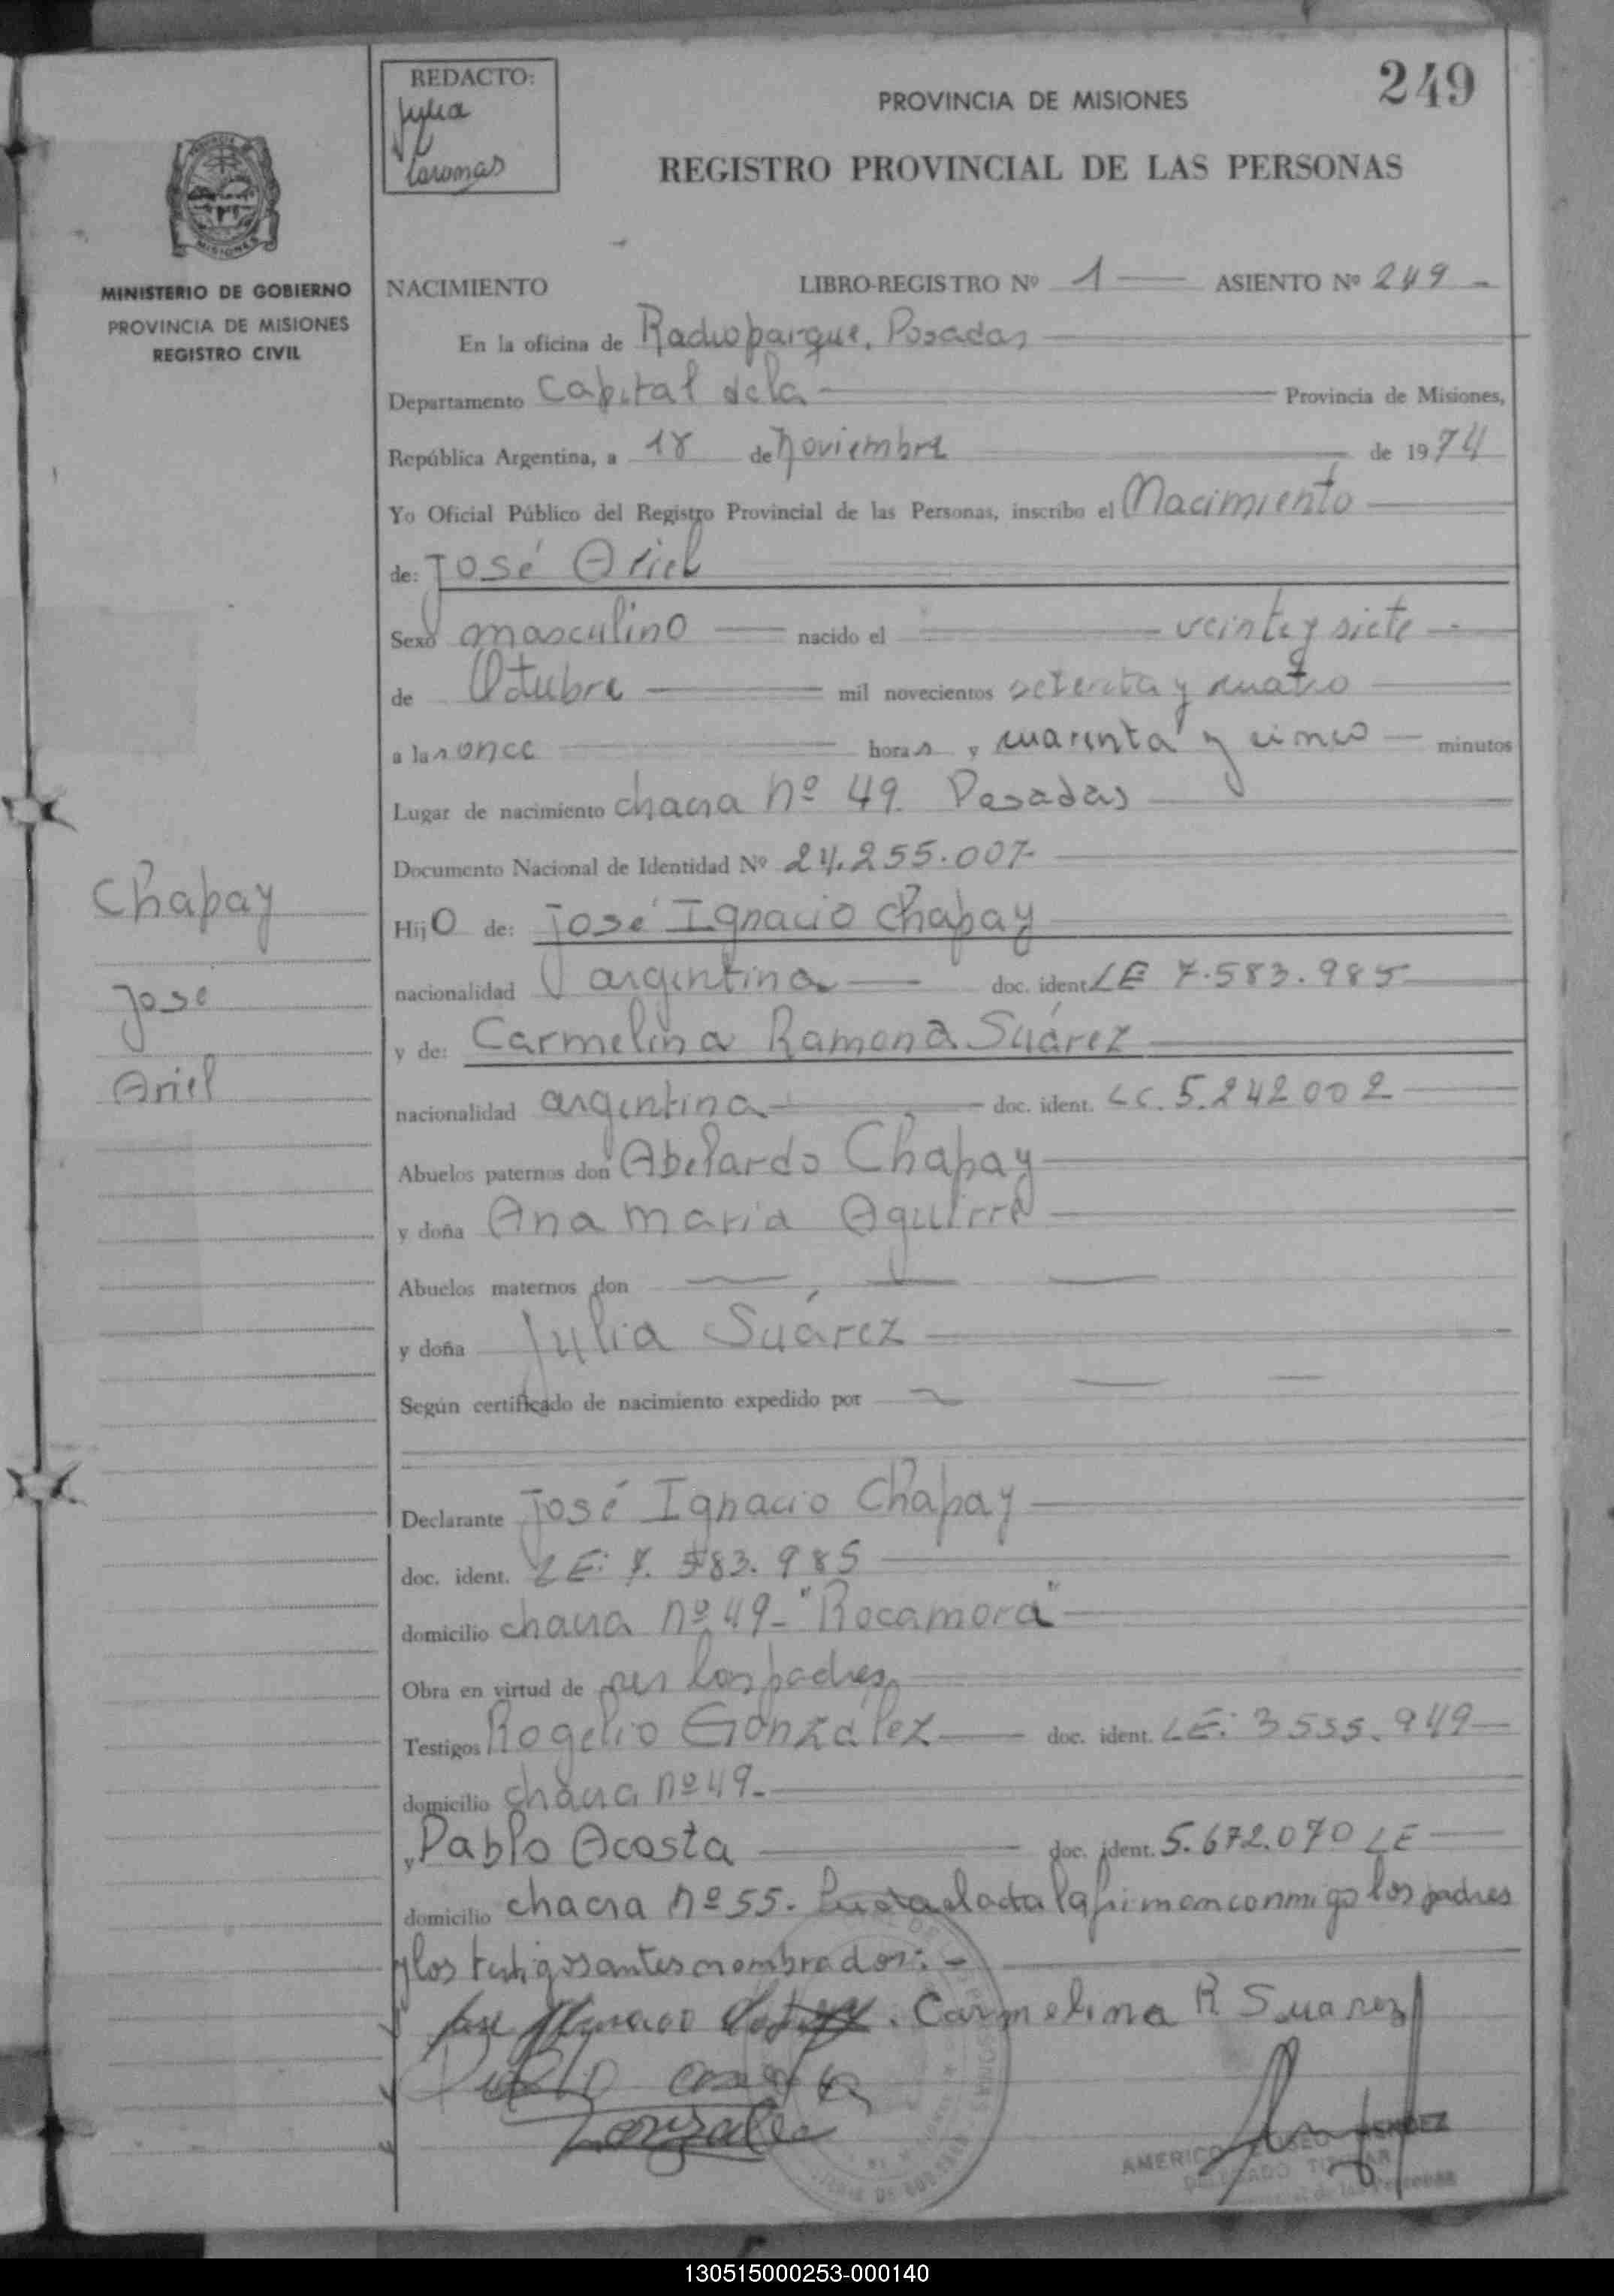 REDACTO:
Julia
Caromas
PROVINCIA DE MISIONES
249
REGISTRO PROVINCIAL DE LAS PERSONAS
MISIONES
MINISTERIO DE GOBIERNO
PROVINCIA DE MISIONES
REGISTRO CIVIL
NACIMIENTO LIBRO-REGISTRO Nº 1 ASIENTO Nº 249
En la oficina de Radioparque. Posadas
Departamento Capital de la Provincia de Misiones,
República Argentina, a 18 de noviembre de 1974
Yo Oficial Público del Registro Provincial de las Personas, inscribo el Nacimiento
de: José Ariel
Sexo masculino nacido el veinte y siete
de Octubre mil novecientos setenta y cuatro
a las once horas y cuarenta y cinco minutos
Lugar de nacimiento chacra nº 49 Posadas
Documento Nacional de Identidad Nº 24.255.007-
Hijo de: José Ignacio Chapay
nacionalidad argentina doc. ident. LE 7.583.985
y de: Carmelina Ramona Suárez
nacionalidad argentina doc. ident. LC. 5.242.002
Abuelos paternos don Abelardo Chapay
y doña Ana maria Aguirre
Abuelos maternos don
y doña Julia Suárez
Según certificado de nacimiento expedido por
Declarante José Ignacio Chapay
doc. ident. LE: 7.583.985
domicilio chacra nº 49- "Rocamora"
Obra en virtud de ser los padres
Testigos Rogelio González doc. ident. LE: 3535.949
domicilio chacra nº 49-
y Pablo Acosta doc. ident. 5.672.070 LE
domicilio chacra nº 55. Leida el acta la firman conmigo los padres
y los testigos antes nombrados: -
Jose Ignacio Chapay. Carmelina R Suarez
Gonzalez
AMERICO MENDEZ
DELEGADO TITULAR
de las Personas
Chapay
Jose
Ariel
130515000253-000140